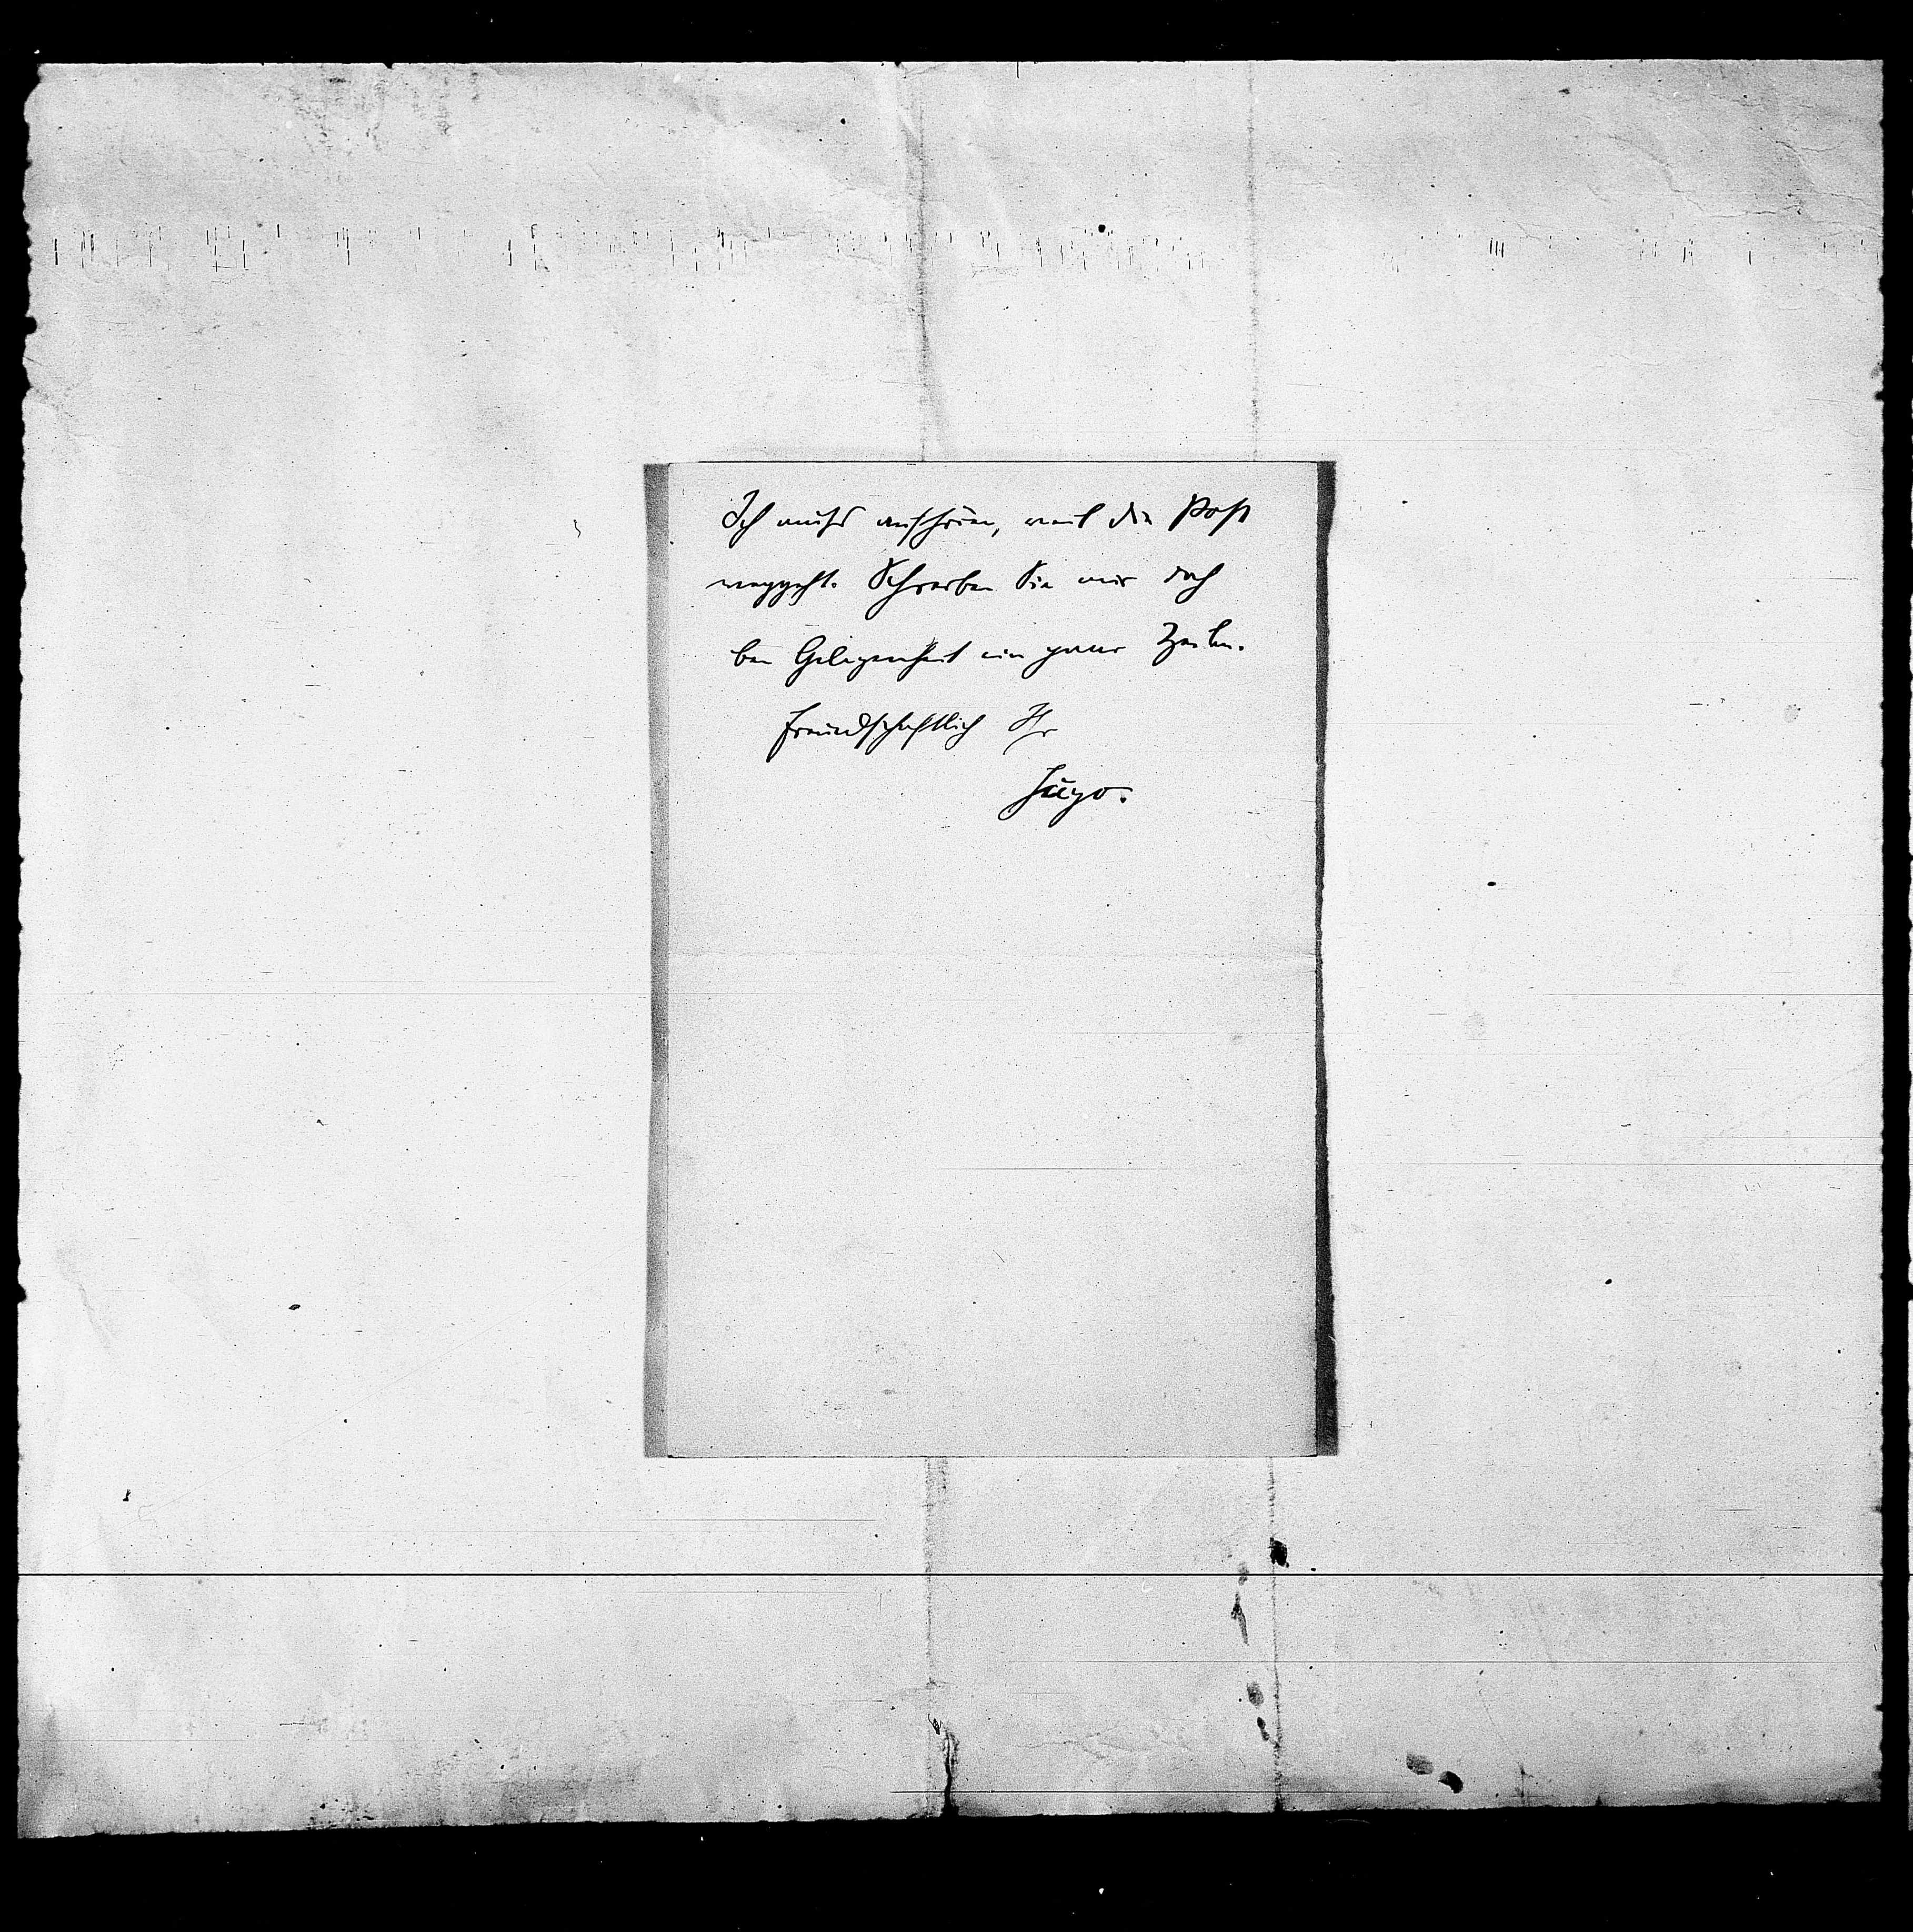 Ich muss aufhören, weil die Post
weggeht. Schreiben Sie mir doch
bei Gelegenheit ein paar Zeilen.
Freundschaftlich Ihr
Hugo.